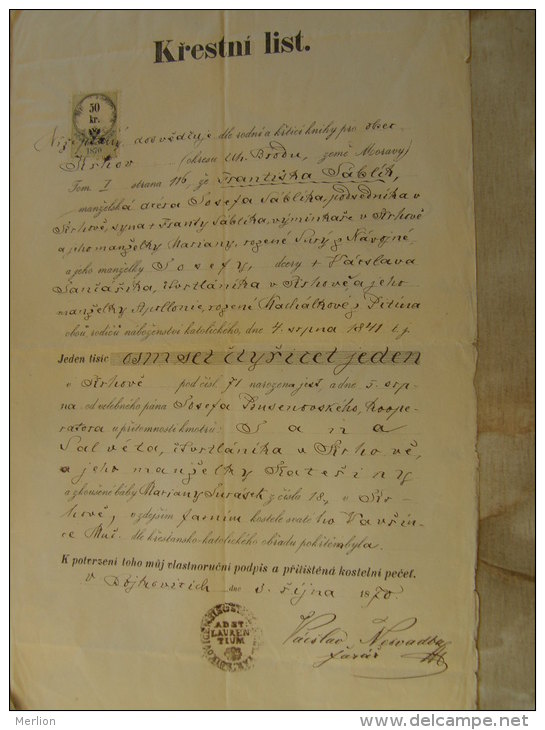 Křestní list.
50
kr.
1870
dosvědčuje dle rodné a křticí knihy pro obec
Krhov (okresu Uh. Brodu, země Moravy)
Tom. I strana 116, že Františka Sáblík,
manželská dcera Josefa Sáblíka, podsedníka v
Krhově, syna + Franty Sáblíka, výminkaře v Krhově
a jeho manželky Mariany, rozené Surý z Návojné
a jeho manželky Josefy, dcery + Václava
Šančaříka, čtvrtláníka v Krhově a jeho
manželky Apollonie, rozené Machálkové z Pitína
obou rodičů náboženství katolického, dne 4. srpna 1841 t.j.
Jeden tisíc osm set čtyřicet jeden
v Krhově pod čísl. 71 narozena jest a dne 5. srp-
na od velebného pána Josefa Koope-
ratora u přítomnosti kmotrů: Jana
Salvéta, čtvrtláníka v Krhově,
a jeho manželky Kateřiny
a zkoušené báby Mariany Jurásek z čísla 18, v Kr-
hově, v zdejším farním kostele svatého Vavřin-
ce Muč. dle křesťansko-katolického obřadu pokřtěna byla.
K potvrzení toho můj vlastnoruční podpis a přitištěná kostelní pečeť.
v Bojkovicích dne 3. října 1870
AD ST
LAUREN
TIUM
Václav Nesvadba
farář
Merlion
www.delcampe.net